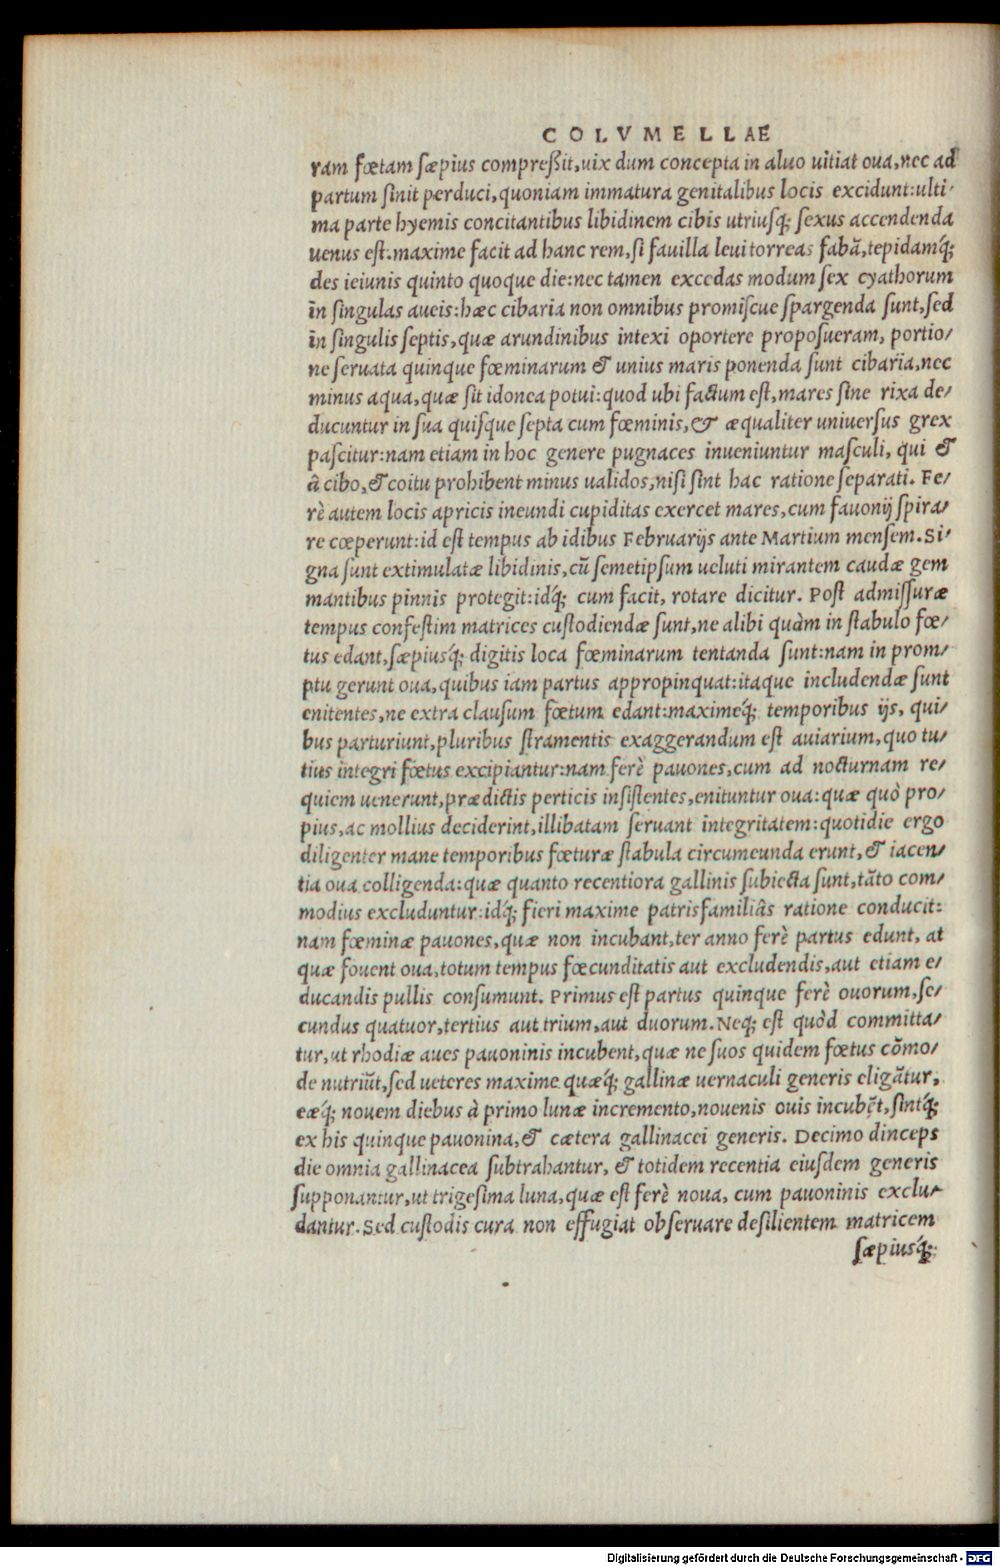 COLVMELLAE
ram fœtam sæpius compreßit,uix dum concepta in aluo uitiat oua,nec ad
partum sinit perduci,quoniam immatura genitalibus locis excidunt:ulti-
ma parte hyemis concitantibus libidinem cibis utriusq; sexus accendenda
uenus est.maxime facit ad hanc rem,si fauilla leui torreas fabã,tepidamq́;
des ieiunis quinto quoque die:nec tamen excedas modum sex cyathorum
in singulas aueis:hæc cibaria non omnibus promiscue spargenda sunt,sed
in singulis septis,quæ arundinibus intexi oportere proposueram, portio-
ne seruata quinque fœminarum & unius maris ponenda sunt cibaria,nec
minus aqua,quæ sit idonea potui:quod ubi factum est,mares sine rixa de-
ducuntur in sua quisque septa cum fœminis,& æqualiter uniuersus grex
pascitur:nam etiam in hoc genere pugnaces inueniuntur masculi, qui &
â cibo,& coitu prohibent minus ualidos,nisi sint hac ratione separati. Fe-
rè autem locis apricis ineundi cupiditas exercet mares,cum fauonij spira-
re cœperunt:id est tempus ab idibus Februarijs ante Martium mensem.Si-
gna sunt extimulatæ libidinis,cũ semetipsum ueluti mirantem caudæ gem
mantibus pinnis protegit:idq́; cum facit, rotare dicitur. Post admissuræ
tempus confestim matrices custodiendæ sunt,ne alibi quàm in stabulo fœ-
tus edant,sæpiusq́; digitis loca fœminarum tentanda sunt:nam in prom-
ptu gerunt oua,quibus iam partus appropinquat:itaque includendæ sunt
enitentes,ne extra clausum fœtum edant:maximeq́; temporibus ijs, qui-
bus parturiunt,pluribus stramentis exaggerandum est auiarium,quo tu-
tius integri fœtus excipiantur:nam ferè pauones,cum ad nocturnam re-
quiem uenerunt,prædictis perticis insistentes,enituntur oua:quæ quò pro-
pius,ac mollius deciderint,illibatam seruant integritatem:quotidie ergo
diligenter mane temporibus fœturæ stabula circumeunda erunt,& iacen-
tia oua colligenda:quæ quanto recentiora gallinis subiecta sunt,tãto com-
modius excluduntur:idq́; fieri maxime patrisfamiliâs ratione conducit:
nam fœminæ pauones,quæ non incubant,ter anno ferè partus edunt, at
quæ fouent oua,totum tempus fœcunditatis aut excludendis,aut etiam e-
ducandis pullis consumunt. Primus est partus quinque ferè ouorum,se-
cundus quatuor,tertius aut trium,aut duorum.Neq; est quòd committa-
tur,ut rhodiæ aues pauoninis incubent,quæ ne suos quidem fœtus cõmo-
de nutriũt,sed ueteres maxime quæq́; gallinæ uernaculi generis eligãtur,
eæq́; nouem diebus à primo lunæ incremento,nouenis ouis incubẽt,sintq́;
ex his quinque pauonina,& cætera gallinacei generis. Decimo dinceps
die omnia gallinacea subtrahantur, & totidem recentia eiusdem generis
supponantur,ut trigesima luna,quæ est ferè noua, cum pauoninis exclu-
dantur.Sed custodis cura non effugiat obseruare desilientem matricem
sæpiusq́;
Digitalisierung gefördert durch die Deutsche Forschungsgemeinschaft - DFG